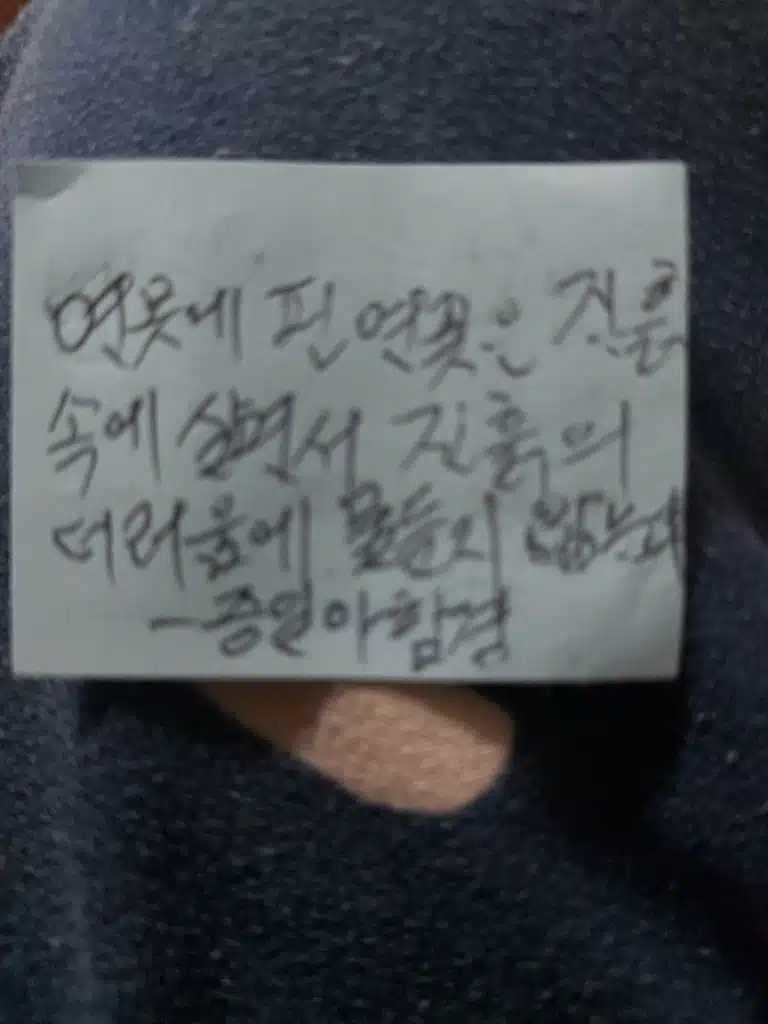 연못에 핀 연꽃은 진흙
속에 살면서 진흙의
더러움에 물들지 않는다
-증일아함경